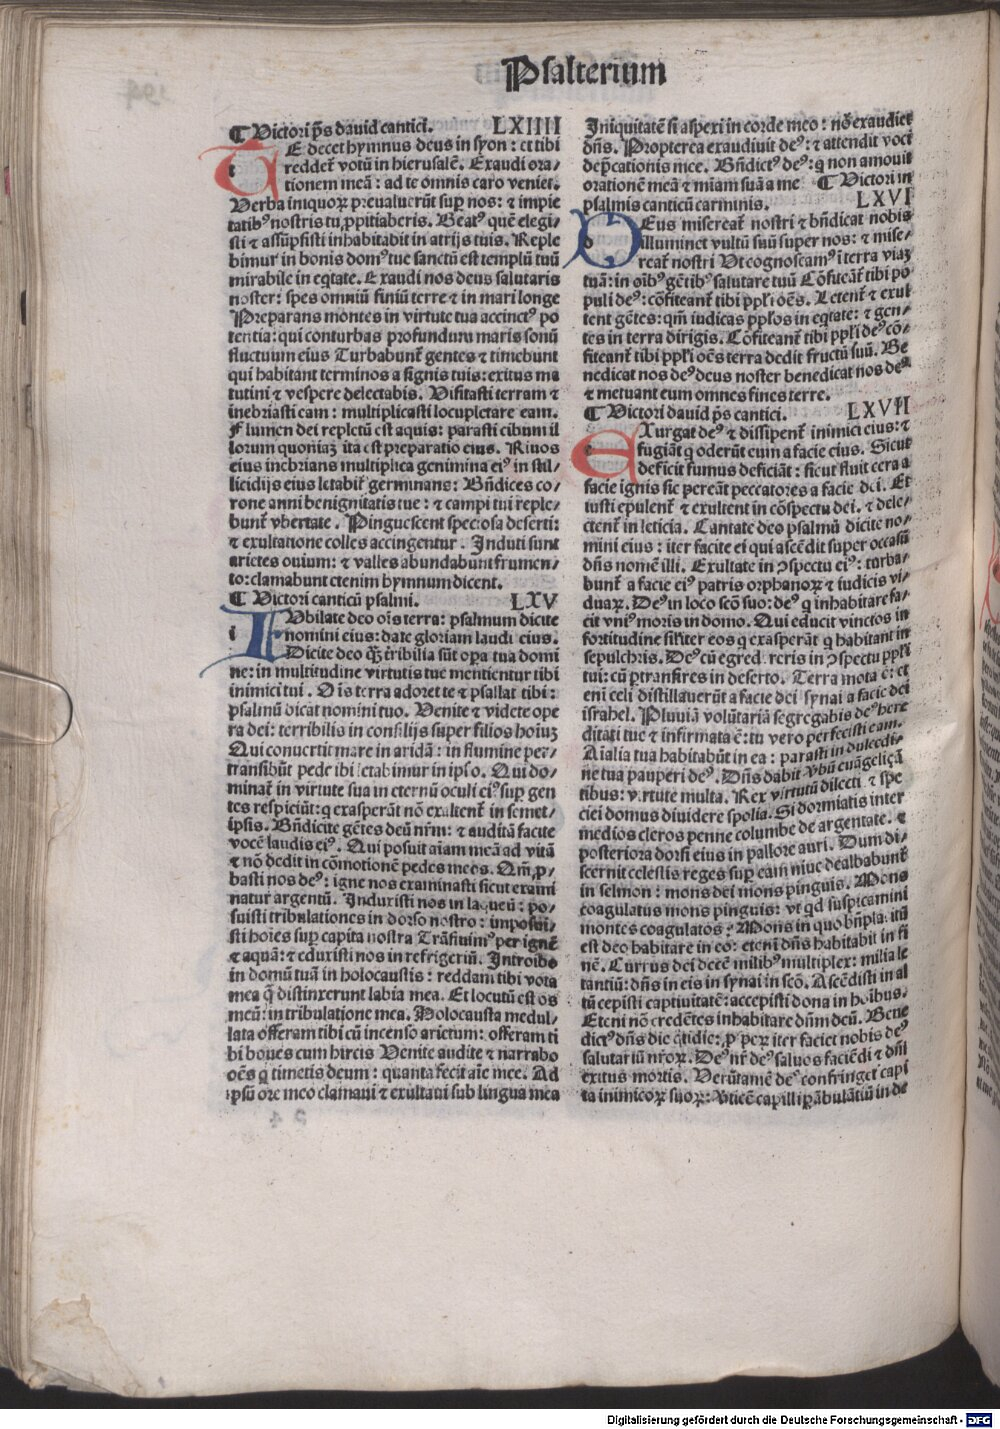 Psalterium
¶ Victori p̄s dauid cantici. LXIIII
TE decet hymnus deus in syon : et tibi
reddet᷑ votū in hierusalē. Exaudi ora-
tionem meā : ad te omnis caro veniet.
Verba iniquoꝝ preualuerūt sup nos: ⁊ impie
tatibꝰ nostris tu ꝓpitiaberis. Beatꝰ quē elegi-
sti ⁊ assūpsisti inhabitabit in atrijs tuis. Reple
bimur in bonis domꝰ tue sanctū est templū tuū
mirabile in eqtate. Exaudi nos deus salutaris
noster: spes omniū finiū terre ⁊ in mari longe
Preparans montes in virtute tua accinctꝰ po
tentia: qui conturbas profundum maris sonū
fluctuum eius Turbabunt᷑ gentes ⁊ timebunt
qui habitant terminos a signis tuis: exitus ma
tutini ⁊ vespere delectabis. Visitasti terram ⁊
inebriasti eam : multiplicasti locupletare eam.
Flumen dei repletū est aquis: parasti cibum il
lorum quoniaꝫ ita est preparatio eius. Riuos
eius inebrians multiplica genimina eiꝰ in stil-
licidijs eius letabit᷑ germinans: Bn̄dices co-
rone anni benignitatis tue : ⁊ campi tui reple-
bunt᷑ vbertate . Pinguescent speciosa deserti:
⁊ exultatione colles accingentur . Induti sunt
arietes ouium: ⁊ valles abundabunt frumen-
to: clamabunt etenim hymnum dicent.
¶ Victori canticū psalmi. LXV
IVbilate deo oīs terra: psalmum dicite
nomini eius: date gloriam laudi eius.
Dicite deo q̄ꝫ tribilia sūt opa tua domi
ne: in multitudine virtutis tue mentientur tibi
inimici tui . Oīs terra adoret te ⁊ psallat tibi:
psalmū dicat nomini tuo. Venite ⁊ videte ope
ra dei: terribilis in consilijs super filios hoiuꝫ
Qui conuertit mare in aridā: in flumine per-
transibūt pede ibi letabimur in ip̄so. Qui do-
minat᷑ in virtute sua in eternū oculi eiꝰ sup gen
tes respiciūt: q exasperāt nō exaltent᷑ in semet-
ipsis. Bn̄dicite gētes deū nr̄m: ⁊ auditā facite
vocē laudis eiꝰ. Qui posuit aīam meā ad vitā
⁊ nō dedit in cōmotionē pedes meos. Qm̄ ꝓ-
basti nos deꝰ: igne nos examinasti sicut exami
natur argentū. Induxisti nos in laqueū: po-
suisti tribulationes in dorso nostro: imposui-
sti hoīes sup capita nostra Trāsiuimꝰ per ignē
⁊ aquā: ⁊ eduxisti nos in refrigeriū. Introibo
in domū tuā in holocaustis: reddam tibi vota
mea q̄ distinxerunt labia mea. Et locutū est os
meū: in tribulatione mea. Holocausta medul-
lata offeram tibi cū incenso arietum: offeram ti
bi boues cum hircis Venite audite ⁊ narrabo
oēs q timetis deum : quanta fecit aīe mee. Ad
ipsū ore meo clamaui ⁊ exultaui sub lingua mea
Iniquitatē si aspexi in corde meo : nō exaudiet
dn̄s. Propterea exaudiuit deꝰ: ⁊ attendit voci
dep̄cationis mee. Bn̄dictꝰ deꝰ: q non amouit
orationē meā ⁊ miam suā a me ¶ Victori in
psalmis canticū carminis. LXVI
DEus misereat᷑ nostri ⁊ bn̄dicat nobis
illuminet vultū suū super nos: ⁊ mise-
reat᷑ nostri Vt cognoscamꝰ i terra viaꝫ
tuā: in oībꝰ gētibꝰ salutare tuū Cōfiteāt᷑ tibi po
puli deꝰ: cōfiteant᷑ tibi ppl̄i oēs. Letent᷑ ⁊ exul
tent gētes: qm̄ iudicas ppl̄os in eqtate: ⁊ gen-
tes in terra dirigis. Cōfiteant᷑ tibi ppl̄i deꝰ cō-
fiteant᷑ tibi ppl̄i oēs terra dedit fructū suū. Be
nedicat nos deꝰ deus noster benedicat nos deꝰ
⁊ metuant eum omnes fines terre.
¶ Victori dauid p̄s cantici. LXVII
EXurgat deꝰ ⁊ dissipent᷑ inimici eius: ⁊
fugiāt q oderūt eum a facie eius. Sicut
deficit fumus deficiāt : sicut fluit cera a
facie ignis sic pereāt peccatores a facie dei. Et
iusti epulent᷑ ⁊ exultent in cōspectu dei. ⁊ dele-
ctent᷑ in leticia. Cantate deo psalmū dicite no-
mini eius : iter facite ei qui ascēdit super occasū
dn̄s nomē illi. Exultate in ꝯspectu eiꝰ: turba-
bunt᷑ a facie eiꝰ patris orphanoꝝ ⁊ iudicis vi-
duaꝝ. Deꝰ in loco scō suo: deꝰ q inhabitare fa-
cit vniꝰ moris in domo. Qui educit vinctos in
fortitudine sil̄iter eos q exasperāt q habitant in
sepulchris. Deꝰ cū egredereris in ꝯspectu ppl̄i
tui: cū ptransires in deserto. Terra mota ē: et
eni celi distillauerūt a facie dei synai a facie dei
israhel. Pluuiā volūtariā segregabis deꝰ here
ditati tue ⁊ infirmata ē: tu vero perfecisti eam.
Aīalia tua habitabūt in ea : parasti in dulcedi-
ne tua pauperi deꝰ. Dn̄s dabit v̄bū euāgeliçā
tibus: virtute multa. Rex virtutū dilecti ⁊ spe
ciei domus diuidere spolia. Si dormiatis inter
medios cleros penne columbe de argentate. ⁊
posteriora dorsi eius in pallore auri. Dum di-
scernit celestis reges sup eam niue dealbabunt᷑
in selmon : mons dei mons pinguis. Mons
coagulatus mons pinguis: vt qd suspicamini
montes coagulatos? Mons in quo bn̄placitū
est deo habitare in eo: eteni dn̄s habitabit in fi
nē. Currus dei decē milibꝰ multiplex: milia le
tantiū: dn̄s in eis in synai in scō. Ascēdisti in al
tū cepisti captiuitatē: accepisti dona in hoībus.
Eteni nō credētes inhabitare dn̄m deū. Bene
dictꝰ dn̄s die q̄tidie: ꝓsperꝝ iter faciet nobis deꝰ
salutariū nr̄oꝝ. Deꝰ nr̄ deꝰ saluos faciēdi ⁊ dn̄i
exitus mortis. Verūtamē deꝰ confringet capi
ta inimicoꝝ suoꝝ: v̄ticē capilli pābulātiū in de
Digitalisierung gefördert durch die Deutsche Forschungsgemeinschaft - DFG